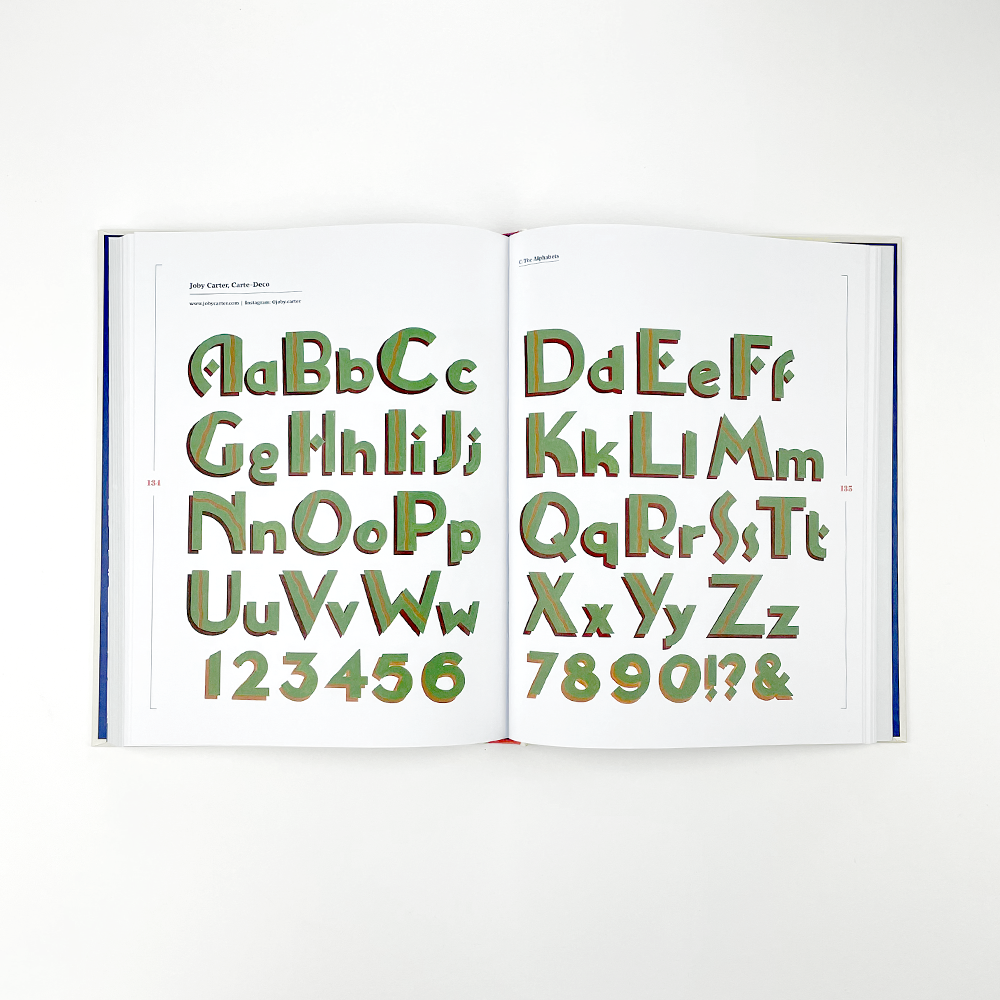 Joby Carter, Carte-Deco
www.jobycarter.com | Instagram: @joby.carter
AaBbCc
GgHhIiJj
134
NnOoPp
UuVvWw
123456
The Alphabets
DdEeFf
KkLlMm
135
QqRrSsTt
XxYyZz
7890!?&